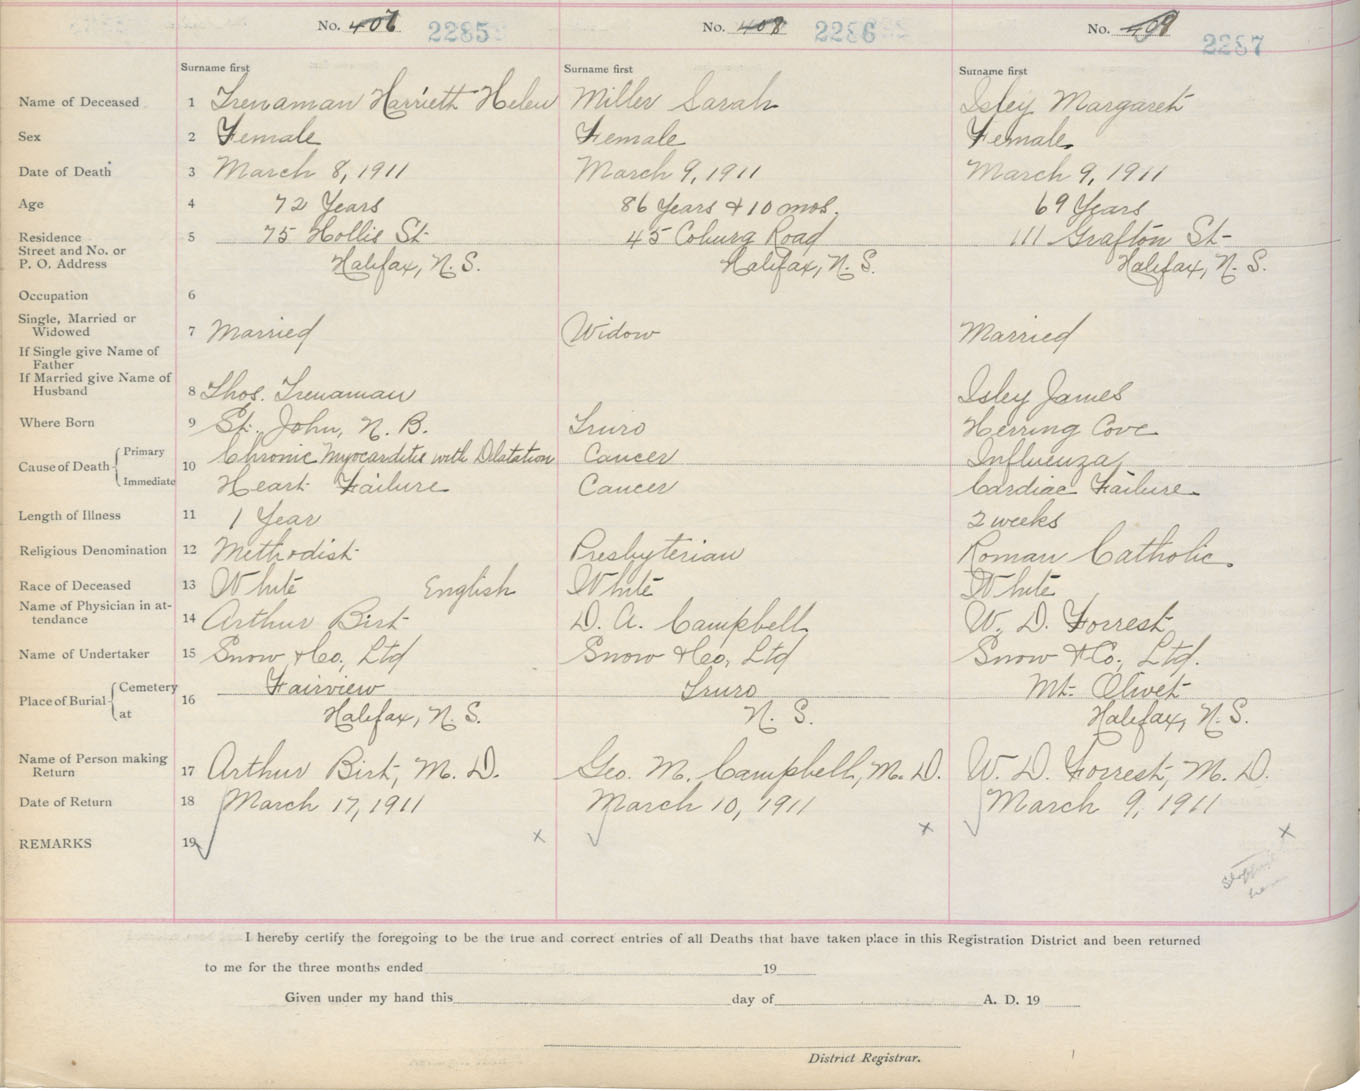 No. 406 2285 No. 408 2286 No. 409 2287
Surname first Surname first Surname first
Name of Deceased 1 Trenaman Harrieth Helen Miller Sarah Isley Margaret
Sex 2 Female Female Female
Date of Death 3 March 8, 1911 March 9, 1911 March 9, 1911
Age 4 72 Years 86 Years & 10 mos. 69 Years
Residence 5 75 Hollis St 45 Coburg Road 111 Grafton St
Street and No. or
P. O. Address Halifax, N. S. Halifax, N. S. Halifax, N. S.
Occupation 6
Single, Married or
Widowed 7 Married Widow Married
If Single give Name of
Father
If Married give Name of
Husband 8 Thos. Trenaman Isley James
Where Born 9 St. John, N. B. Truro Herring Cove
Cause of Death Primary 10 Chronic Myocarditis with Dilatation Cancer Influenza
Immediate Heart Failure Cancer Cardiac Failure
Length of Illness 11 1 Year 2 weeks
Religious Denomination 12 Methodist Presbyterian Roman Catholic.
Race of Deceased 13 White English White White
Name of Physician in at-
tendance 14 Arthur Birt D. A. Campbell W. D. Forrest
Name of Undertaker 15 Snow & Co, Ltd Snow & Co, Ltd Snow & Co., Ltd.
Place of Burial Cemetery 16 Fairview Truro Mt. Olivet
at Halifax, N. S. N. S. Halifax, N. S.
Name of Person making
Return 17 Arthur Birt, M. D. Geo. M. Campbell, M. D. W. D. Forrest, M. D.
Date of Return 18 March 17, 1911 March 10, 1911 March 9, 1911
REMARKS 19 x x x
I hereby certify the foregoing to be the true and correct entries of all Deaths that have taken place in this Registration District and been returned
to me for the three months ended 19
Given under my hand this day of A. D. 19
District Registrar.